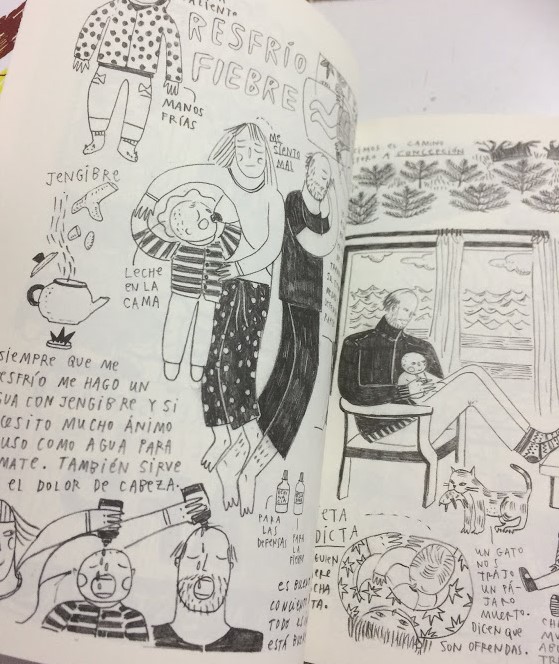 ALIENTO
RESFRÍO
FIEBRE
MANOS
FRÍAS
ME
SIENTO
MAL
JENGIBRE
LECHE
EN LA
CAMA
SIEMPRE QUE ME
RESFRÍO ME HAGO UN
AGUA CON JENGIBRE Y SI
NECESITO MUCHO ÁNIMO
USO COMO AGUA PARA
MATE. TAMBIÉN SIRVE
EL DOLOR DE CABEZA.
PARA
LAS
DEFENSAS
PARA
LA
FIEBRE
ES
TODO
ESTÁ
CAMINO
A CONCEPCIÓN
UN GATO
NOS
TRAJO
UN PÁ-
JARO
MUERTO.
DICEN QUE
SON OFRENDAS.